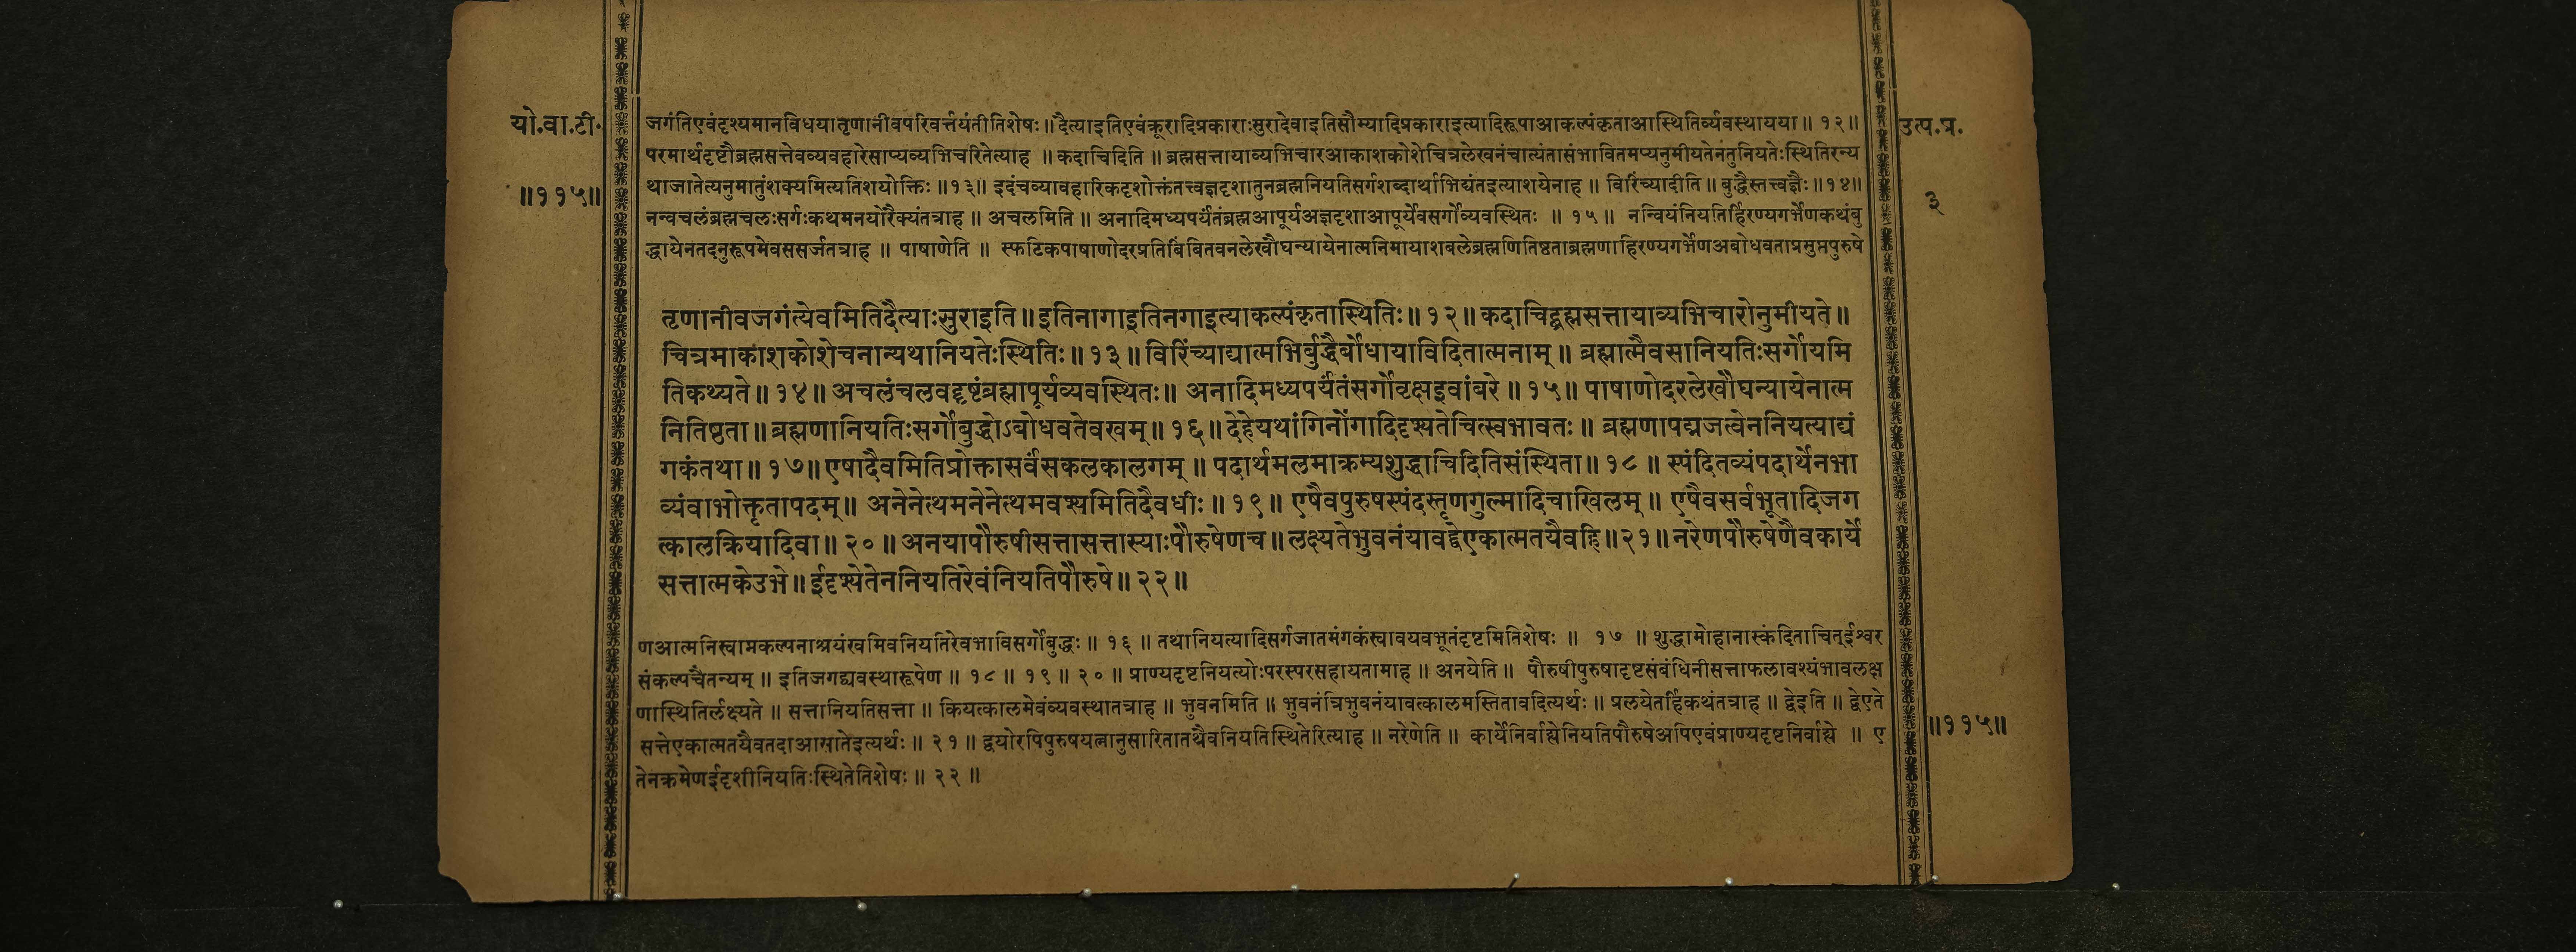 यो.वा.टी.
॥११५॥
उत्प.प्र.
३
जगंतिएवंदृश्यमानविधयातृणानीवपरिवर्त्तयंतीतिशेषः॥दैत्याइतिएवंक्रूरादिप्रकाराःसुरादेवाइतिसौम्यादिप्रकाराइत्यादिरूपाआकल्पंकृताआस्थितिर्व्यवस्थायया॥ १२॥
परमार्थदृष्टौब्रह्मसत्तेवव्यवहारेसाप्यव्यभिचरितेत्याह ॥ कदाचिदिति ॥ ब्रह्मसत्तायाव्यभिचारआकाशकोशेचित्रलेखनंचात्यंतासंभावितमप्यनुमीयतेनतुनियतेःस्थितिरन्य
थाजातेत्यनुमातुंशक्यमित्यतिशयोक्तिः ॥१३॥ इदंचव्यावहारिकदृशोक्तंतत्त्वज्ञदृशातुनब्रह्मनियतिसर्गशब्दार्थाभिद्यंतइत्याशयेनाह ॥ विरिंच्यादीति॥ बुद्धैस्तत्त्वज्ञैः॥१४॥
नन्वचलंब्रह्मचलःसर्गःकथमनयोरैक्यंतत्राह ॥ अचलमिति ॥ अनादिमध्यपर्यंतंब्रह्मआपूर्यअज्ञदृशाआपूर्येवसर्गोव्यवस्थितः ॥ १५॥ नन्वियंनियतिर्हिरण्यगर्भेणकथंबु
द्धायेनतदनुरूपमेवससर्जतत्राह ॥ पाषाणेति ॥ स्फटिकपाषाणोदरप्रतिबिंबितवनलेखौघन्यायेनात्मनिमायाशबलेब्रह्मणितिष्ठताब्रह्मणाहिरण्यगर्भेणअबोधवताप्रसुप्तपुरुषे
तृणानीवजगंत्येवमितिदैत्याःसुराइति॥इतिनागाइतिनगाइत्याकल्पंकृतास्थितिः॥१२॥कदाचिद्ब्रह्मसत्तायाव्यभिचारोनुमीयते॥
चित्रमाकाशकोशेचनान्यथानियतेःस्थितिः॥१३॥विरिंच्याद्यात्मभिर्बुद्धैर्बोधायाविदितात्मनाम्॥ ब्रह्मात्मैवसानियतिःसर्गोयमि
तिकथ्यते॥१४॥अचलंचलवद्दृष्टंब्रह्मापूर्यव्यवस्थितः॥ अनादिमध्यपर्यंतंसर्गोवृक्षइवांबरे॥१५॥ पाषाणोदरलेखौघन्यायेनात्म
नितिष्ठता॥ब्रह्मणानियतिःसर्गोबुद्धोऽबोधवतेवखम्॥१६॥देहेयथांगिनोंगादिदृश्यतेचित्स्वभावतः॥ ब्रह्मणापद्मजत्वेननियत्याद्यं
गकंतथा॥१७॥एषादैवमितिप्रोक्तासर्वंसकलकालगम्॥ पदार्थमलमाक्रम्यशुद्धाचिदितिसंस्थिता॥१८॥ स्पंदितव्यंपदार्थेनभा
व्यंवाभोक्तृतापदम्॥ अनेनेत्थमनेनेत्थमवश्यमितिदैवधीः॥१९॥ एषैवपुरुषस्पंदस्तृणगुल्मादिचाखिलम्॥ एषैवसर्वभूतादिजग
त्कालक्रियादिवा॥२०॥अनयापौरुषीसत्तासत्तास्याःपौरुषेणच॥लक्ष्यतेभुवनंयावद्द्वेएकात्मतयैवहि॥२१॥नरेणपौरुषेणैवकार्ये
सत्तात्मकेउभे॥ईदृश्येतेननियतिरेवंनियतिपौरुषे॥२२॥
णआत्मनिस्वाप्नकल्पनाश्रयंखमिवनियतिरेवभाविसर्गोबुद्धः॥ १६ ॥ तथानियत्यादिसर्गजातमंगकंस्वावयवभूतंदृष्टमितिशेषः ॥ १७ ॥ शुद्धामोहानास्कंदिताचित्ईश्वर
संकल्पचैतन्यम् ॥ इतिजगद्व्यवस्थारूपेण ॥ १८ ॥ १९ ॥ २० ॥ प्राण्यदृष्टनियत्योःपरस्परसहायतामाह ॥ अनयेति ॥ पौरुषीपुरुषादृष्टसंबंधिनीसत्ताफलावश्यंभावलक्ष
णास्थितिर्लक्ष्यते ॥ सत्तानियतिसत्ता ॥ कियत्कालमेवंव्यवस्थातत्राह ॥ भुवनमिति ॥ भुवनंत्रिभुवनंयावत्कालमस्तितावदित्यर्थः ॥ प्रलयेतर्हिकथंतत्राह ॥ द्वेइति ॥ द्वेएते
सत्तेएकात्मतयैवतदाआसातेइत्यर्थः ॥ २१ ॥ द्वयोरपिपुरुषयत्नानुसारितातथैवनियतिस्थितेरित्याह ॥ नरेणेति ॥ कार्येनिर्वाह्येनियतिपौरुषेअपिएवंप्राण्यदृष्टनिर्वाह्ये ॥ ए
तेनक्रमेणईदृशीनियतिःस्थितेतिशेषः ॥ २२ ॥
॥११५॥